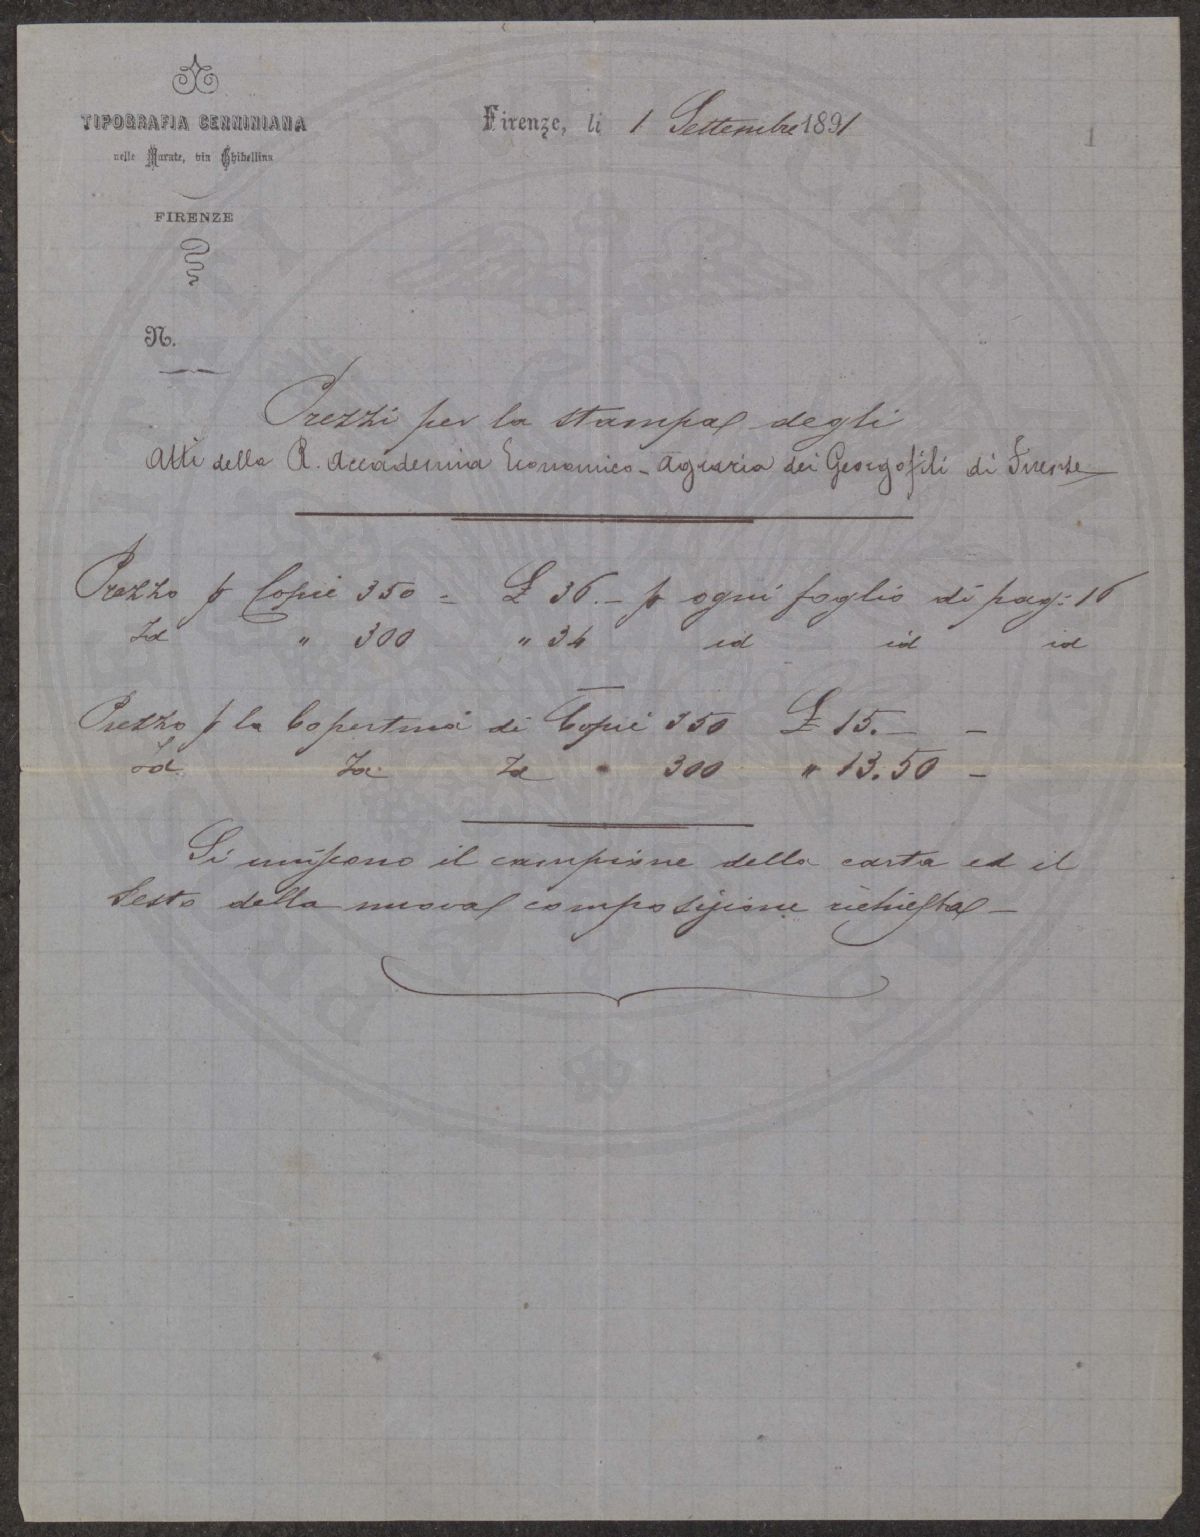 TIPOGRAFIA CENNINIANA
nelle Murate, via Ghibellina
FIRENZE
N.
Firenze, li 1 Settembre 1891
1
Prezzi per la stampa degli
Atti della R. Accademia Economico-Agraria dei Georgofili di Firenze
Prezzo p Copie 350 = £ 36.— p ogni foglio di pag: 16
Id " 300 " 34 id id id
Prezzo p la Copertina di Copie 350 £ 15.— —
Id Id Id 300 " 13.50 —
Si uniscono il campione della carta ed il
sesto della nuova composizione richiesta —